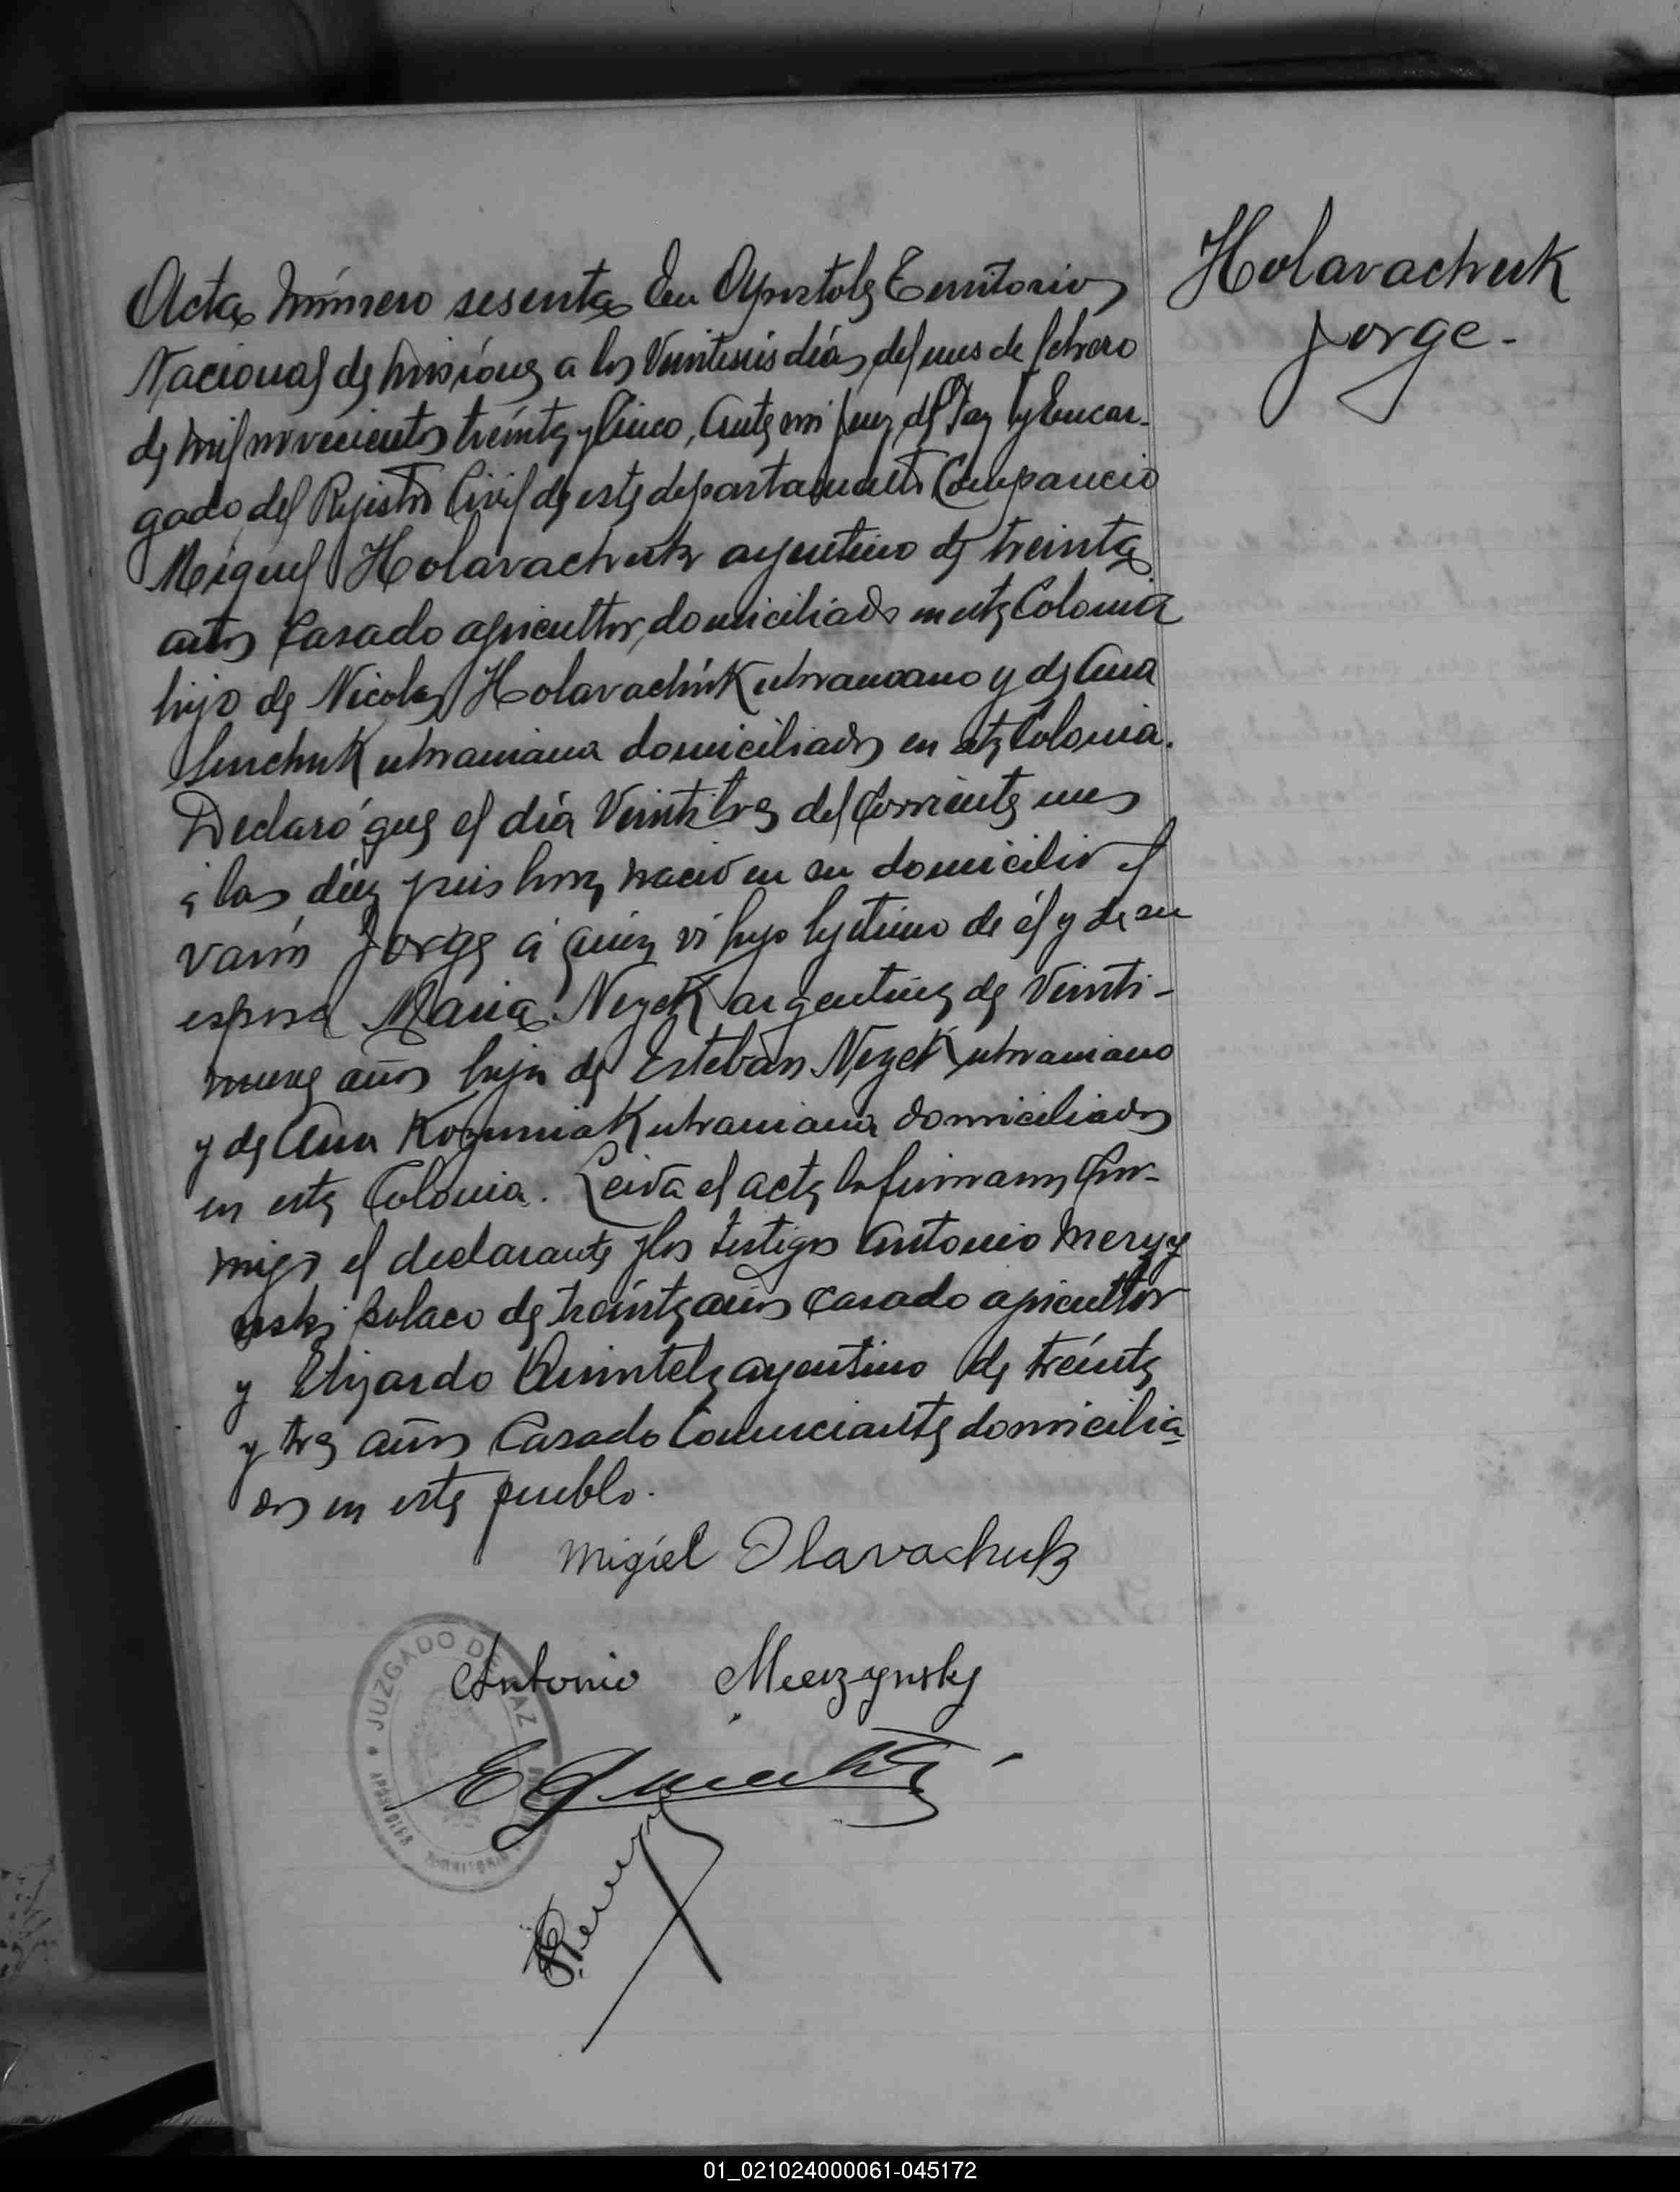 Holavachuk
Jorge.-
Acta Número sesenta En Apostoles Territorio
Nacional de Misiónes a los Veintiseis días del mes de febrero
de mil novecientos treinta y Cinco, Ante mi Juez de Paz y Encar-
gado del Rejistro Civil de este departamento Compareció
Miguel Holavachuk argentino de treinta
años Casado agricultor, domiciliado en esta Colonia
hijo de Nicolas Holavachuk ukraniano y de Ana
ukraniana domiciliados en esta Colonia.
Declaró que el día Veintitres del Corriente mes
á las diez horas nació en su domicilio el
varón Jorge á quien ví hijo lejitimo de él y de su
esposa Maria Nezek argentina de Veinti-
nueve años hija de Esteban Nezek ukraniano
y de Ana Kozuniak ukraniana domiciliados
en esta Colonia. Leida el acta la firmaron Con-
migo el declarante y los testigos Antonio Merzy
nski polaco de treinta años Casado agricultor
y Elizardo Quintela argentino de treinta
y tres años Casado Comerciante domicilia-
dos en este pueblo.
Migiel Olavachuk
Antonio Merzynsky
E Quintela
JUZGADO DE PAZ
APOSTOLES
TERRITORIO
01_021024000061-045172